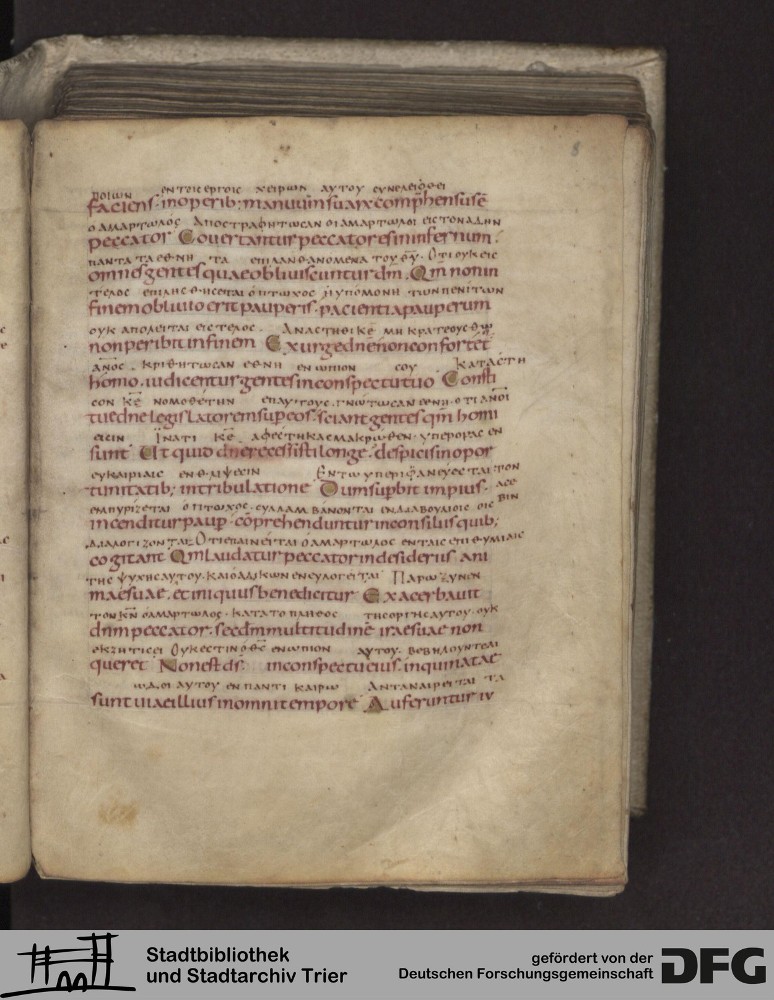 ΠΟΙωΝ ΕΝΤΟΙC ΕΡΓΟΙC ΧΕΙΡωΝ ΑΥΤΟΥ CΥΝΕΛΕΙΦΘΕΙ
faciens. inoperib; manuum suarx comphensus ē
Ο ΑΜΑΡΤωΛΟC ΑΠΟCΤΡΑΦΗΤωCΑΝ ΟΙ ΑΜΑΡΤωΛΟΙ ΕΙC ΤΟΝ ΑΔΗΝ
peccator Covertantur peccatores ininfernum.
ΠΑΝΤΑ ΤΑ ΕΘΝΗ ΤΑ ΕΠΙΛΑΝΘΑΝΟΜΕΝΑ ΤΟΥ ΘΥ. ΟΤΙ ΟΥΚ ΕΙC
omnes gentes quae obliuiscuntur dm. Qm non in
ΤΕΛΟC ΕΠΙΛΗCΘΗCΕΤΑΙ Ο ΠΤωΧΟC Η ΥΠΟΜΟΝΗ ΤωΝ ΠΕΝΙΤωΝ
finem obliuio erit pauperis. pacientia pauperum
ΟΥΚ ΑΠΟΛΕΙΤΑΙ ΕΙC ΤΕΛΟC. ΑΝΑCΤΗΘΙ ΚΕ ΜΗ ΚΡΑΤΕΟΥCΘω
non peribit infinem Exurge dne non confortet
ΑΝΟC. ΚΡΙΘΗΤωCΑΝ ΕΘΝΗ ΕΝωΠΙΟΝ CΟΥ ΚΑΤΑCΤΗ
homo. iudicentur gentes inconspectu tuo Consti
CΟΝ ΚΕ ΝΟΜΟΘΕΤΗΝ ΕΠ ΑΥΤΟΥC. ΓΝωΤωCΑΝ ΕΘΝΗ. ΟΤΙ ΑΝΟΙ
tue dne legislatorem sup eos. sciant gentes qm homi
ΕΙCΙΝ ΙΝΑΤΙ ΚΕ ΑΦΕCΤΗΚΑC ΜΑΚΡωΘΕΝ. ΥΠΕΡΟΡΑC ΕΝ
sunt Ut quid dne recessisti longe. despicis in opor
ΕΥΚΑΙΡΙΑΙC ΕΝ ΘΛΙΨΕCΙΝ ΕΝ Τω ΥΠΕΡΙΦΑΝΕΥΕCΤΑΙ ΤΟΝ ΑCΕ
tunitatib; in tribulatione Dum supbit impius.
ΕΜΠΥΡΙΖΕΤΑΙ Ο ΠΤωΧΟC. CΥΛΛΑΜΒΑΝΟΝΤΑΙ ΕΝ ΔΙΑΒΟΥΛΙΟΙC ΟΙC ΒΙΝ
incenditur paup. coprehenduntur in consilus quib;
ΔΙΑΛΟΓΙΖΟΝΤΑΙ. ΟΤΙ ΕΠΑΙΝΕΙΤΑΙ Ο ΑΜΑΡΤωΛΟC ΕΝ ΤΑΙC ΕΠΙΘΥΜΙΑΙC
cogitant Qm laudatur peccator in desiderus ani
ΤΗC ΨΥΧΗC ΑΥΤΟΥ. ΚΑΙ Ο ΑΔΙΚωΝ ΕΝΕΥΛΟΓΕΙΤΑΙ ΠΑΡωΞΥΝΕΝ
mae suae. et iniquus benedicitur Exacerbauit
ΤΟΝ ΚΝ Ο ΑΜΑΡΤωΛΟC. ΚΑΤΑ ΤΟ ΠΛΗΘΟC ΤΗC ΟΡΓΗC ΑΥΤΟΥ. ΟΥΚ
dnm peccator. secdm multitudine irae suae non
ΕΚΖΗΤΙCΕΙ ΟΥΚ ΕCΤΙΝ Ο ΘC ΕΝωΠΙΟΝ ΑΥΤΟΥ. ΒΕΒΗΛΟΥΝΤΑΙ
queret Non est ds. inconspectu eius. inquinatae
ωΔΟΙ ΑΥΤΟΥ ΕΝ ΠΑΝΤΙ ΚΑΙΡω ΑΝΤΑΝΑΙΡΕΙΤΑΙ ΤΑ
sunt uiae illius in omni tempore Auferuntur iu
8
Stadtbibliothek
und Stadtarchiv Trier
gefördert von der
Deutschen Forschungsgemeinschaft
DFG